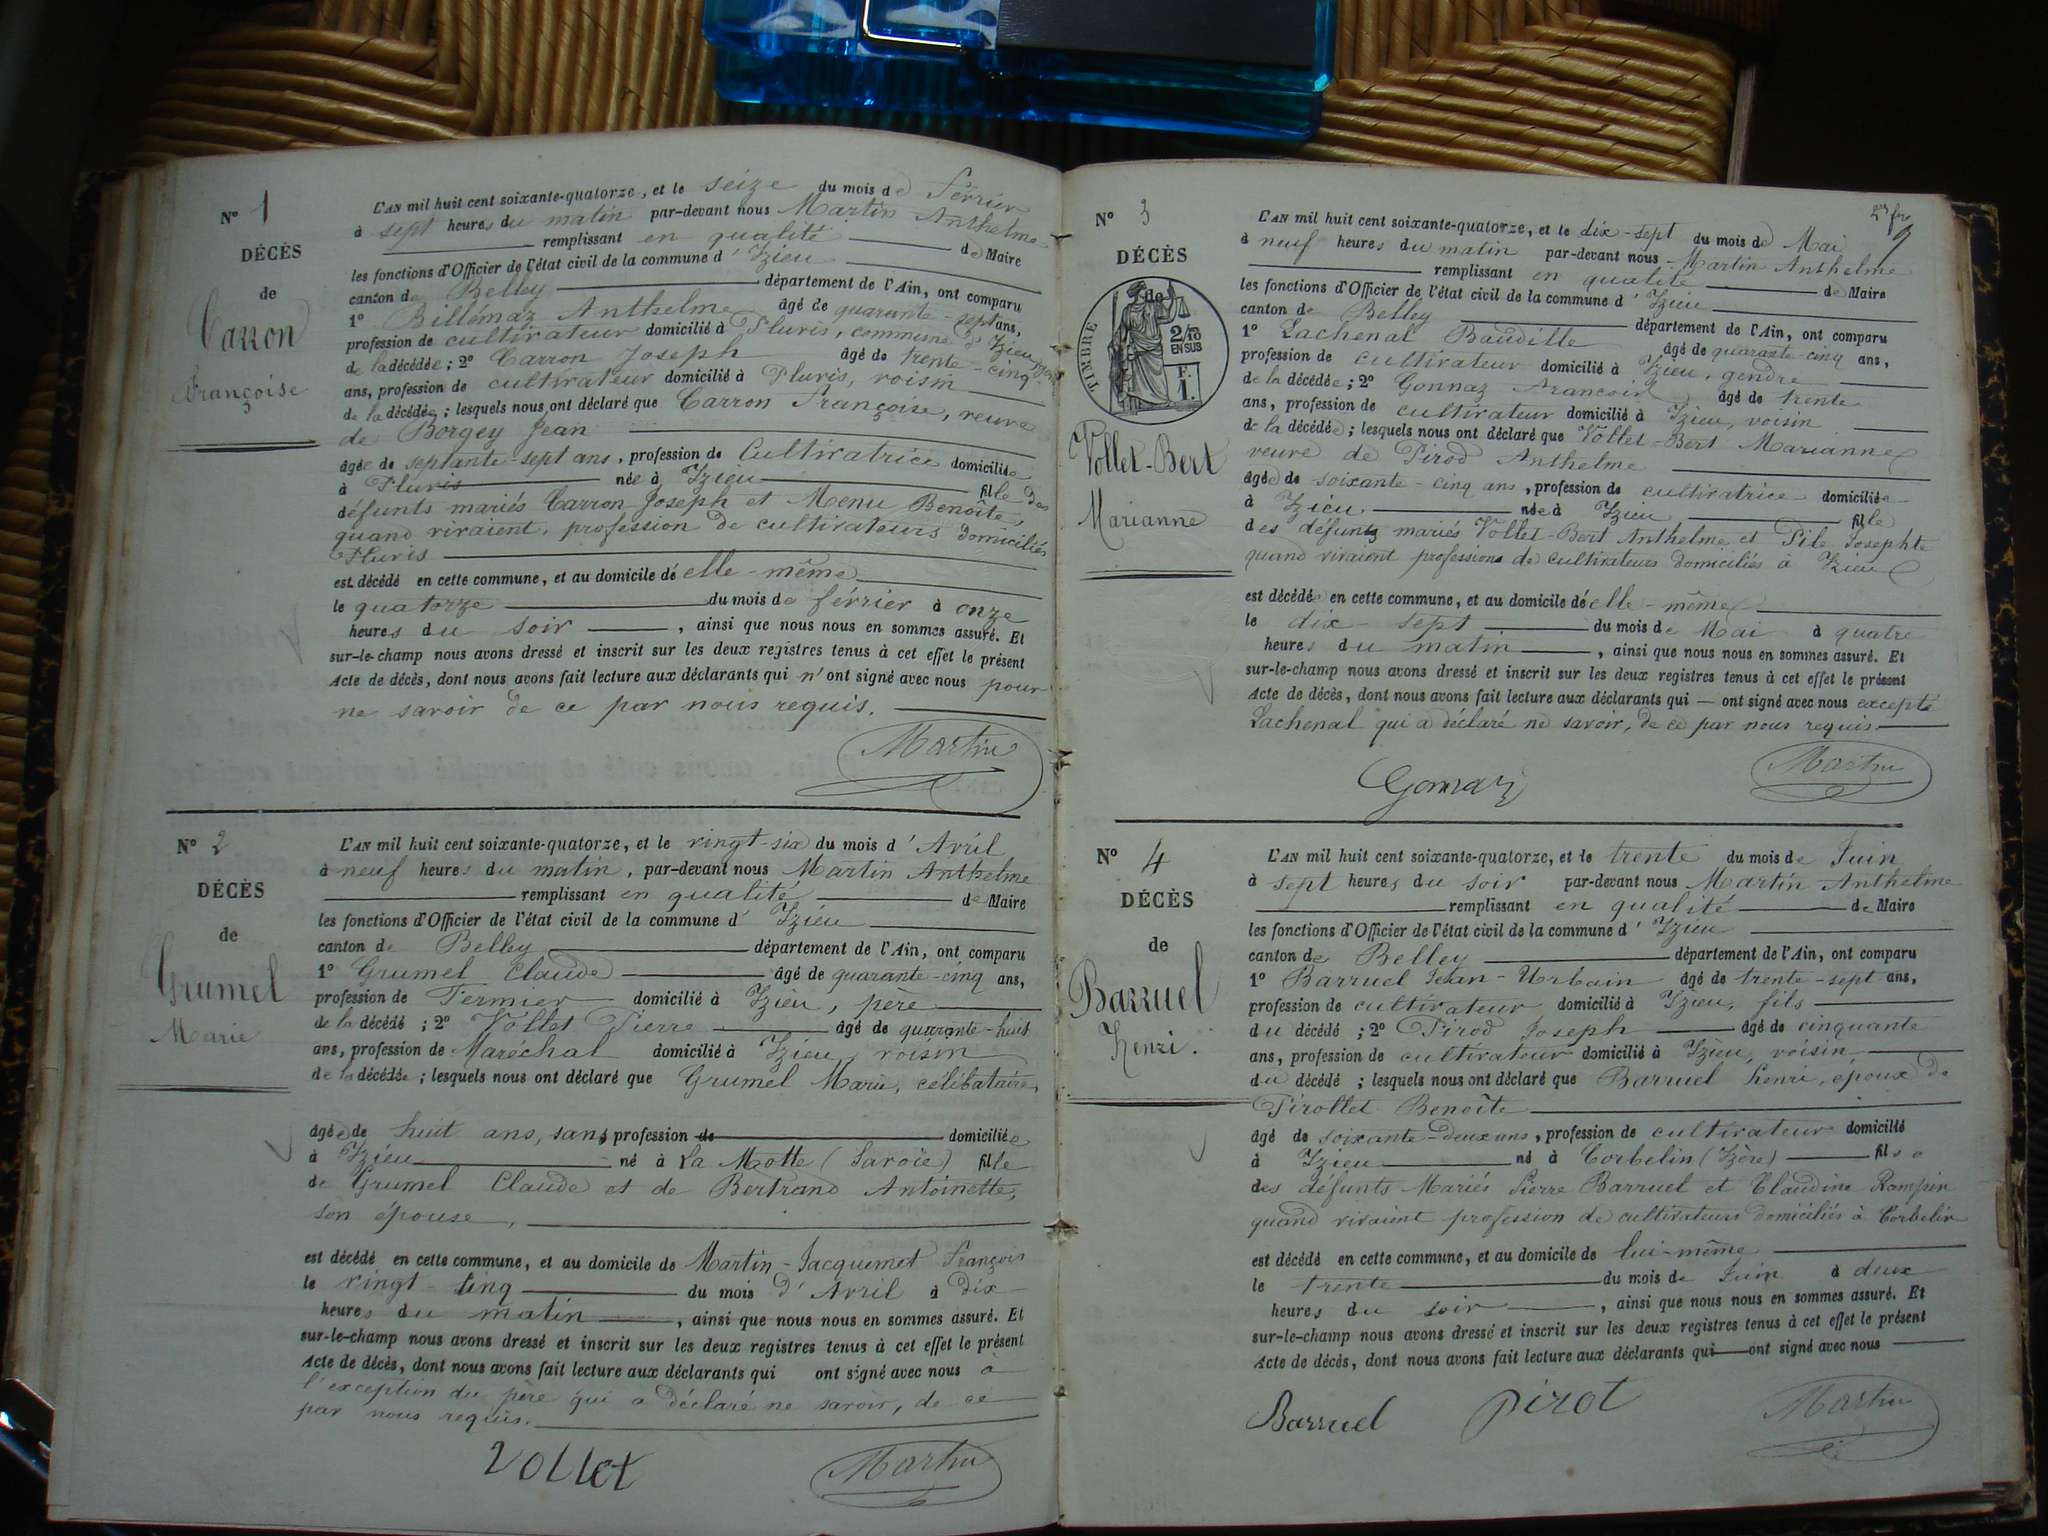 N° 1
DÉCÈS
de
Carron
Françoise
L'AN mil huit cent soixante-quatorze, et le seize du mois de Février
à sept heures du matin par-devant nous Martin Anthelme
remplissant en qualité de Maire
les fonctions d'Officier de l'état civil de la commune d'Izieu
canton de Belley département de l'Ain, ont comparu
1° Billémaz Anthelme âgé de quarante-sept ans,
profession de cultivateur domicilié à Pluris, commune d'Izieu
de la décédée; 2° Carron Joseph âgé de trente-cinq
ans, profession de cultivateur domicilié à Pluris, voisin
de la décédée; lesquels nous ont déclaré que Carron Françoise, veuve
de Borgey Jean
âgée de septante-sept ans, profession de Cultivatrice domiciliée
à Pluris née à Izieu fille des
défunts mariés Carron Joseph et Menu Benoîte,
quand vivaient, profession de cultivateurs domiciliés
Pluris
est décédé en cette commune, et au domicile de elle-même
le quatorze du mois de février à onze
heures du soir, ainsi que nous nous en sommes assuré. Et
sur-le-champ nous avons dressé et inscrit sur les deux registres tenus à cet effet le présent
Acte de décès, dont nous avons fait lecture aux déclarants qui n'ont signé avec nous pour
ne savoir de ce par nous requis.
Martin
N° 2
DÉCÈS
de
Grumel
Marie
L'AN mil huit cent soixante-quatorze, et le vingt-six du mois d'Avril
à neuf heures du matin, par-devant nous Martin Anthelme
remplissant en qualité de Maire
les fonctions d'Officier de l'état civil de la commune d'Izieu
canton de Belley département de l'Ain, ont comparu
1° Grumel Claude âgé de quarante-cinq ans,
profession de Fermier domicilié à Izieu, père
de la décédé; 2° Vollet Pierre âgé de quarante-huit
ans, profession de Maréchal domicilié à Izieu, voisin
de la décédée; lesquels nous ont déclaré que Grumel Marie, célibataire,
âgée de huit ans, sans profession de domiciliée
à Izieu né à La Motte (Savoie) fille
de Grumel Claude et de Bertrand Antoinette,
son épouse,
est décédé en cette commune, et au domicile de Martin-Jacquemet François
le vingt-cinq du mois d'Avril à dix
heures du matin, ainsi que nous nous en sommes assuré. Et
sur-le-champ nous avons dressé et inscrit sur les deux registres tenus à cet effet le présent
Acte de décès, dont nous avons fait lecture aux déclarants qui ont signé avec nous à
l'exception du père qui a déclaré ne savoir, de ce
par nous requis.
Vollet Martin
N° 3
DÉCÈS
de
TIMBRE
2/10
EN SUS
F.
1.
Vollet-Bert
Marianne
L'AN mil huit cent soixante-quatorze, et le dix-sept du mois de Mai
à neuf heures du matin par-devant nous Martin Anthelme
remplissant en qualité de Maire
les fonctions d'Officier de l'état civil de la commune d'Izieu
canton de Belley département de l'Ain, ont comparu
1° Lachenal Baudille âgé de quarante-cinq ans,
profession de cultivateur domicilié à Izieu, gendre
de la décédée; 2° Gonnaz Francois âgé de trente
ans, profession de cultivateur domicilié à Izieu, voisin
de la décédée; lesquels nous ont déclaré que Vollet-Bert Marianne
veuve de Pirod Anthelme
âgée de soixante-cinq ans, profession de cultivatrice domiciliée
à Izieu née à Izieu fille
des défunts mariés Vollet-Bert Anthelme et Josephte
quand vivaient professions de cultivateurs domiciliés à Izieu
est décédée en cette commune, et au domicile de elle-même
le dix-sept du mois de Mai à quatre
heures du matin, ainsi que nous nous en sommes assuré. Et
sur-le-champ nous avons dressé et inscrit sur les deux registres tenus à cet effet le présent
Acte de décès, dont nous avons fait lecture aux déclarants qui — ont signé avec nous excepté
Lachenal qui a déclaré ne savoir, de ce par nous requis
Gonnaz Martin
N° 4
DÉCÈS
de
Barruel
Henri.
L'AN mil huit cent soixante-quatorze, et le trente du mois de Juin
à sept heures du soir par-devant nous Martin Anthelme
remplissant en qualité de Maire
les fonctions d'Officier de l'état civil de la commune d'Izieu
canton de Belley département de l'Ain, ont comparu
1° Barruel Jean-Urbain âgé de trente-sept ans,
profession de cultivateur domicilié à Izieu, fils
du décédé; 2° Pirod Joseph âgé de cinquante
ans, profession de cultivateur domicilié à Izieu, voisin
du décédé; lesquels nous ont déclaré que Barruel henri, époux de
Pirollet Benoîte
âgé de soixante-deux ans, profession de cultivateur domicilié
à Izieu né à Corbelin (Izère) fils
des défunts Mariés Pierre Barruel et Claudine Rampin
quand vivaient profession de cultivateurs domiciliés à Corbelin
est décédé en cette commune, et au domicile de lui-même
le trente du mois de Juin à deux
heures du soir, ainsi que nous nous en sommes assuré. Et
sur-le-champ nous avons dressé et inscrit sur les deux registres tenus à cet effet le présent
Acte de décès, dont nous avons fait lecture aux déclarants qui — ont signé avec nous
Barruel pirot Martin